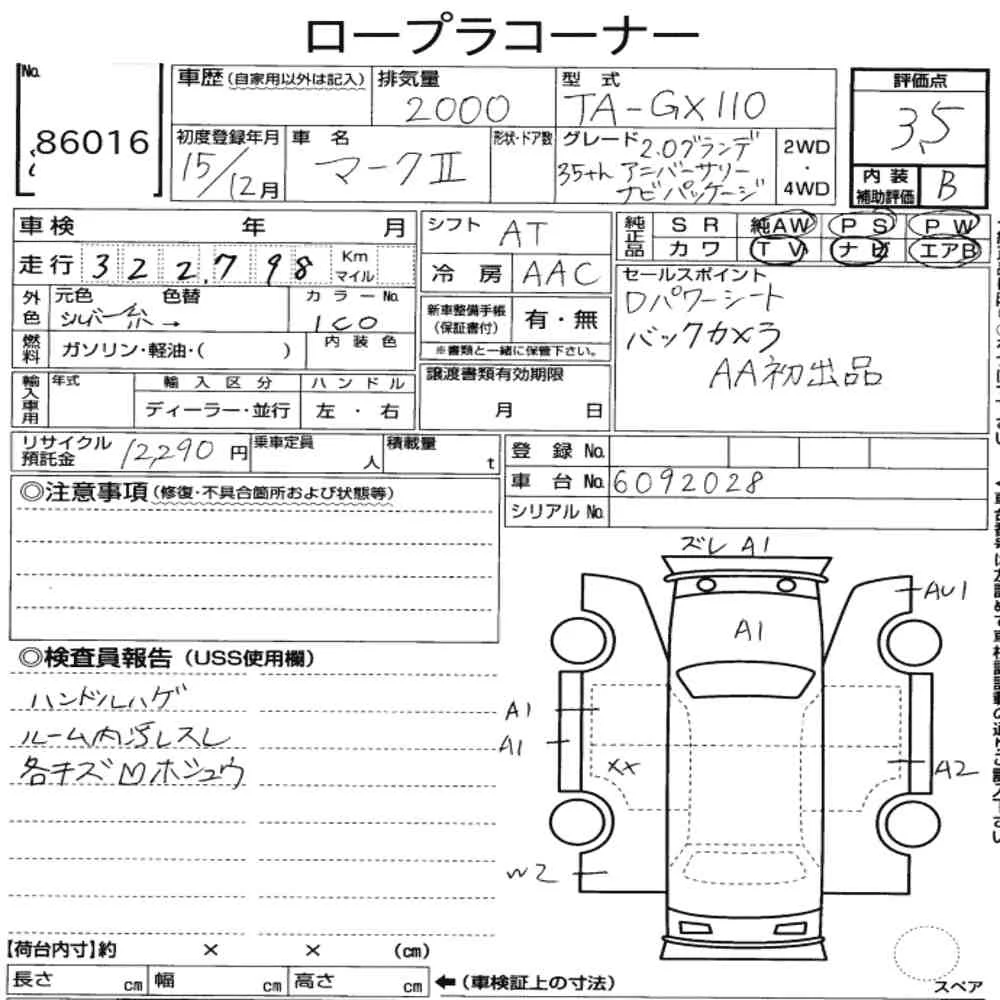 ロープラコーナー
No.
86016
車歴(自家用以外は記入)
排気量
2000
型式
TA-GX110
評価点
3.5
初度登録年月
15/12月
車名
マークⅡ
形状・ドア数
グレード 2.0グランデ
35th アニバーサリー
ナビパッケージ
2WD
・
4WD
内装
補助評価
B
車検 年 月
シフト AT
純正品
SR 純AW PS PW
カワ TV ナビ エアB
走行 322,798 Km マイル
冷房 AAC
セールスポイント
Dパワーシート
バックカメラ
AA初出品
外色
元色 色替
シルバー系→
カラーNo.
1C0
新車整備手帳
(保証書付)
有・無
※書類と一緒に保管下さい。
燃料
ガソリン・軽油・( )
内装色
輸入車用
年式
輸入区分
ディーラー・並行
ハンドル
左・右
譲渡書類有効期限
月 日
リサイクル
預託金
12,290円
乗車定員
人
積載量
t
登録No.
車台No. 6092028
シリアルNo.
◎注意事項(修復・不具合箇所および状態等)
ズレ A1
AU1
A1
◎検査員報告(USS使用欄)
ハンドルハゲ
ルーム内汚レスレ
各キズ凹ホシュウ
A1
A1
XX
A2
W2
【荷台内寸】約 × × (cm)
長さ cm 幅 cm 高さ cm
←(車検証上の寸法)
スペア